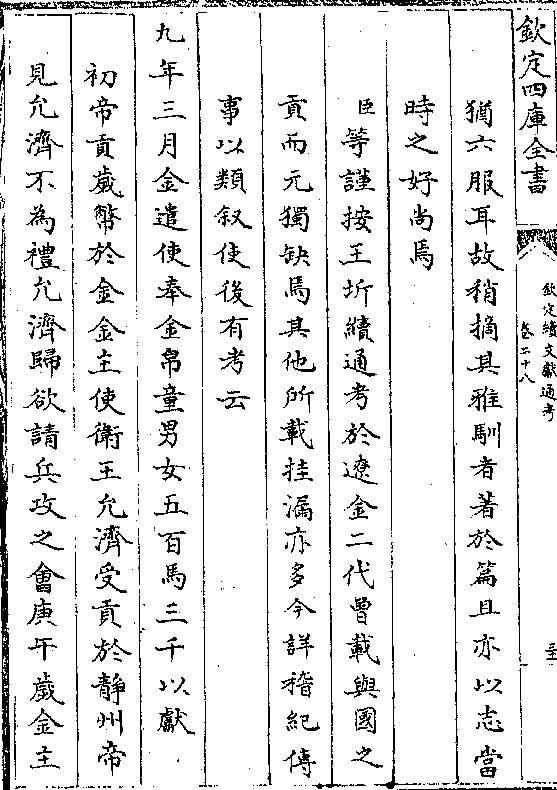 欽定四庫全書
欽定續文獻通考
卷二十八
猶六服耳故稍摘其雅馴者著於篇且亦以志當
時之好尚焉
臣等謹按王圻續通考於遼金二代曾載與國之
貢而元獨缺焉其他所載挂漏亦多今詳稽紀傳
事以類叙使後有考云
九年三月金遣使奉金帛童男女五百馬三千以獻
初帝貢歲幣於金金主使衛王允濟受貢於靜州帝
見允濟不為禮允濟歸欲請兵攻之會庚午歲金主